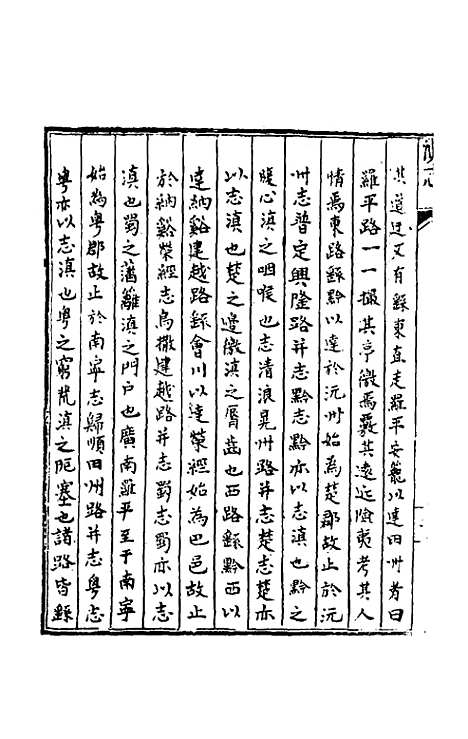 其道迂又有繇東直走羅平安籠以達田州者曰
羅平路一一撮其亭徼焉覈其遠近險夷考其人
情焉東路繇黔以達於沅州始為楚郡故止於沅
州志普定興隆路并志黔志黔亦以志滇也黔之
腹心滇之咽喉也志清浪晃州路并志楚志楚亦
以志滇也楚之邊徼滇之脣齒也西路繇黔西以
達納谿建越路繇會川以達榮經始為巴邑故止
於納谿榮經志烏撒建越路并志蜀志蜀亦以志
滇也蜀之藩籬滇之門户也廣南羅平至于南寧
始為粤郡故止於南寧志歸順田州路并志粤志
粤亦以志滇也粤之窮荒滇之阨塞也諸路皆繇